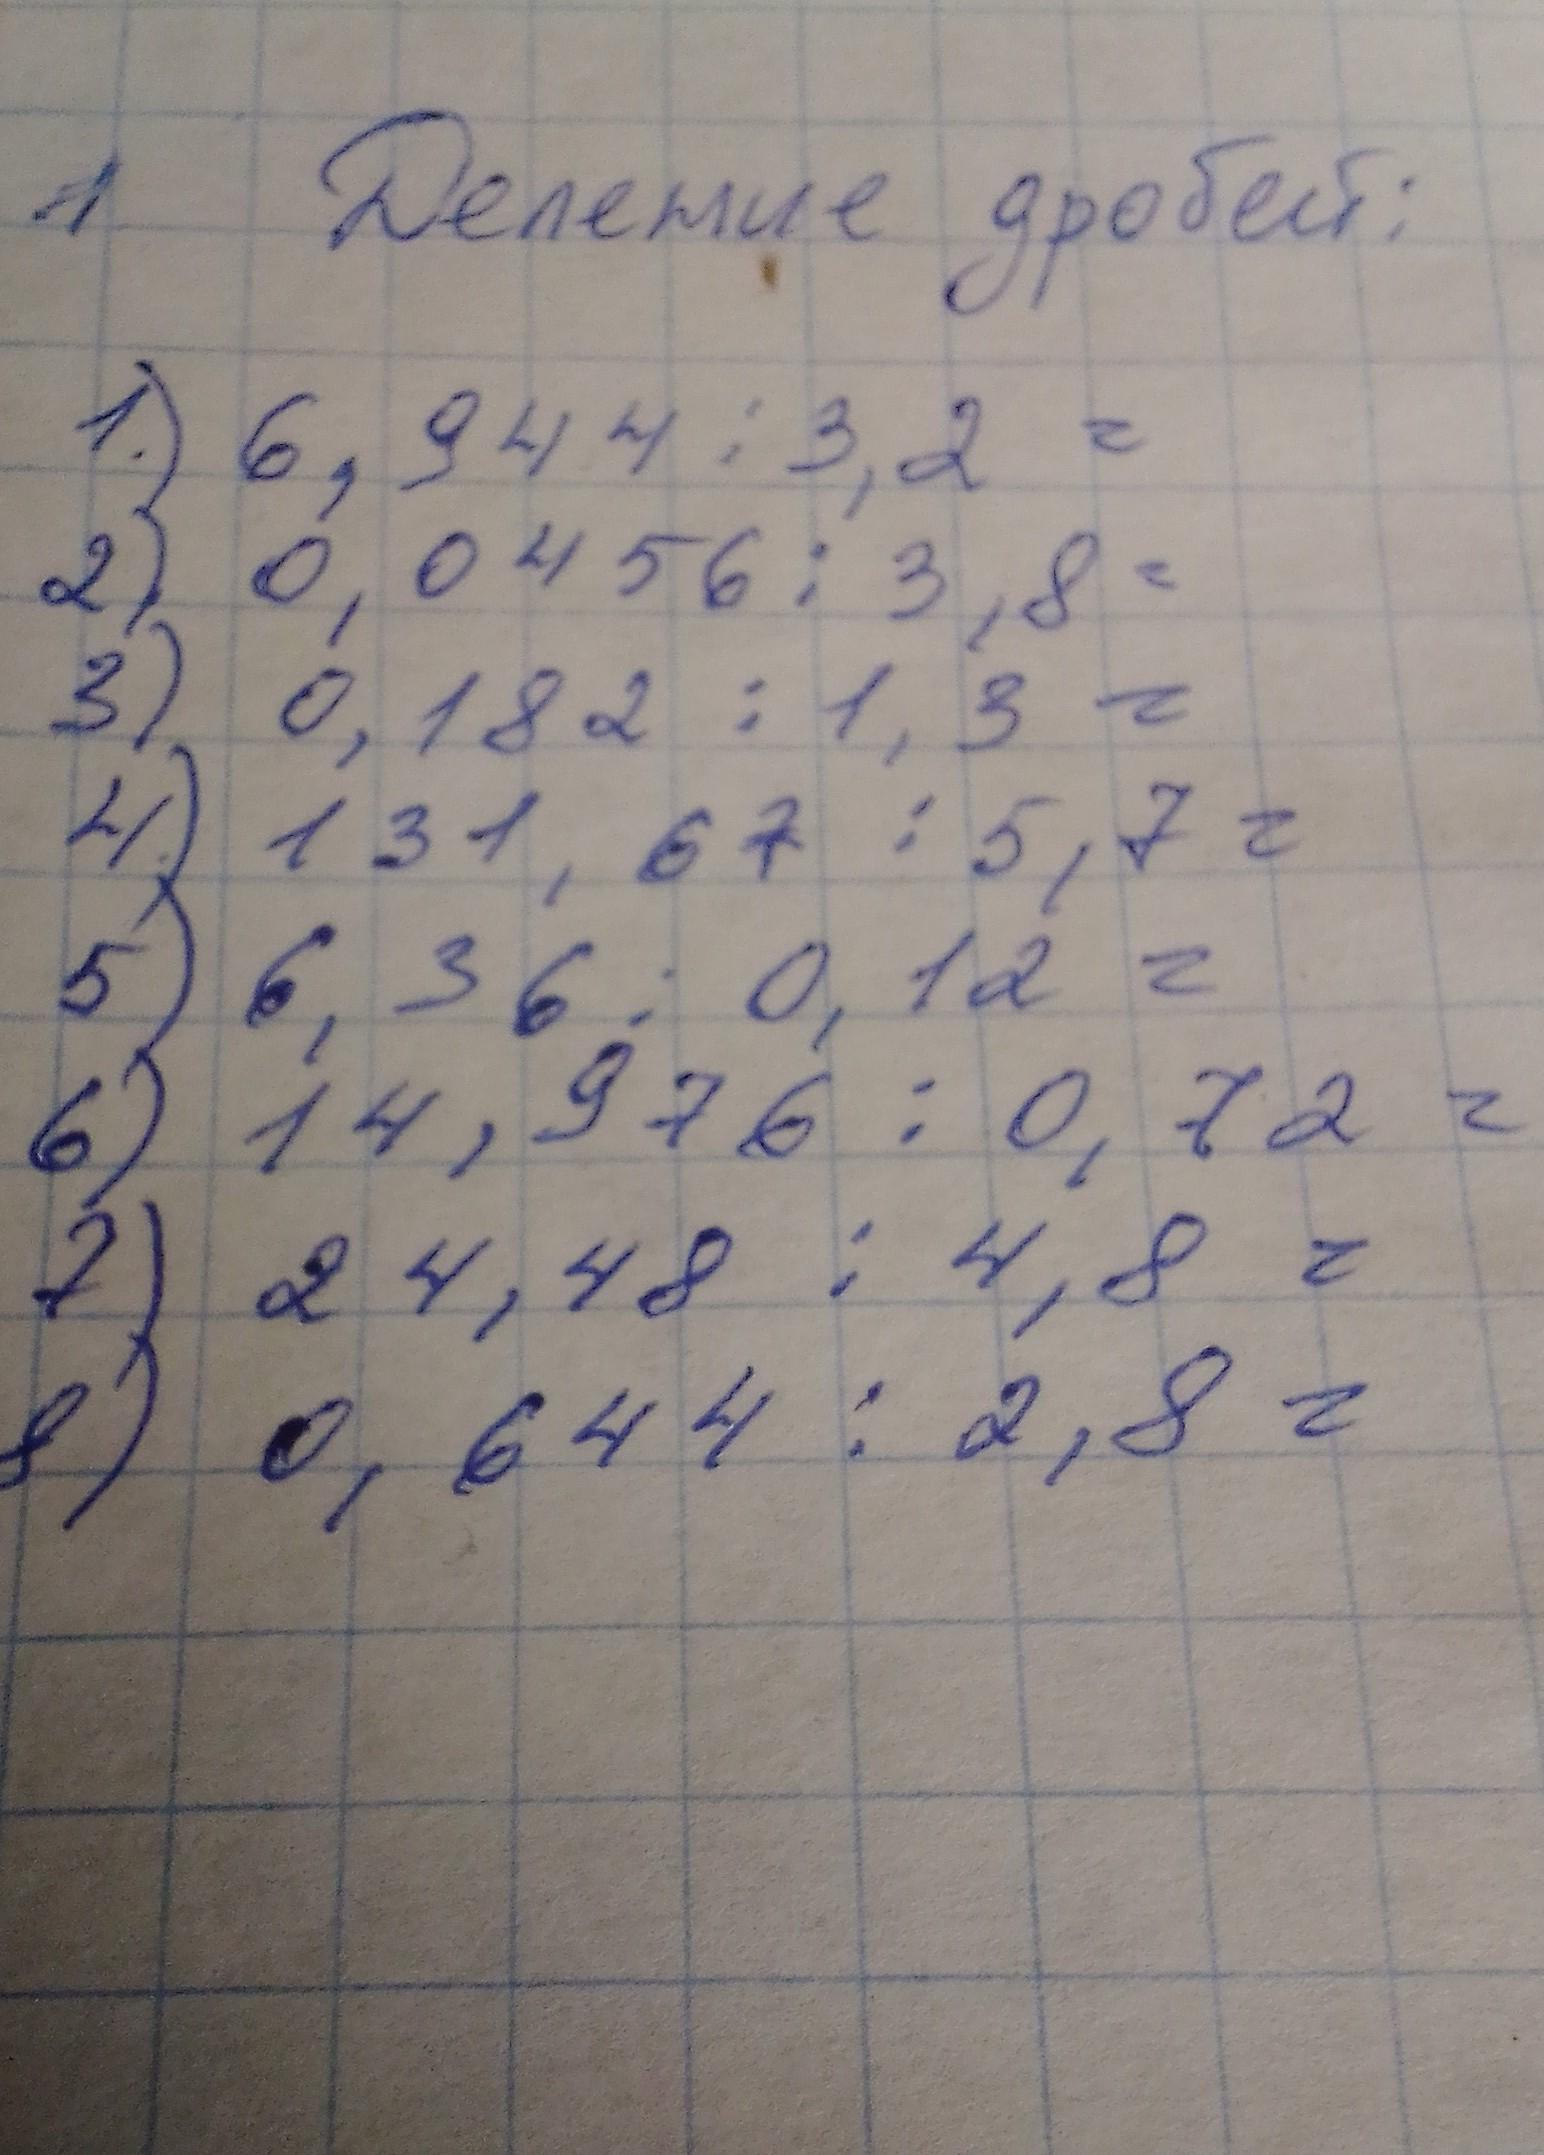 1 Деление дробей:
1.) 6,944 : 3,2 =
2) 0,0456 : 3,8 =
3) 0,182 : 1,3 =
4.) 131,67 : 5,7 =
5) 6,36 : 0,12 =
6) 14,976 : 0,72 =
7) 24,48 : 4,8 =
8) 0,644 : 2,8 =